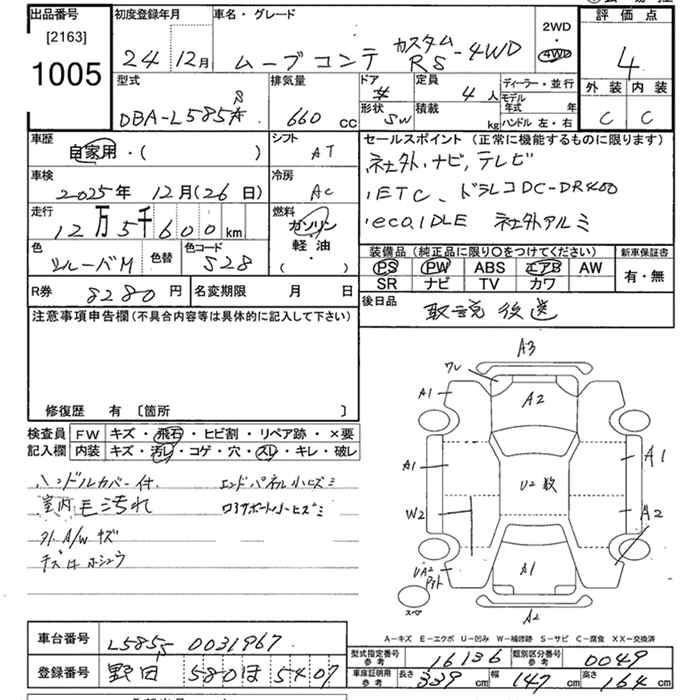 出品番号
[2163]
1005
初度登録年月
24年 12月
車名・グレード
ムーブコンテ カスタム RS-4WD
2WD
4WD
評価点
4
外装 内装
C C
型式
DBA-L585S
排気量
660 CC
ドア
形状 SW
定員
4人
積載
kg
ディーラー・並行
モデル年式 年
ハンドル 左・右
車歴
自家用・( )
シフト
AT
車検
2025年 12月(26日)
冷房
AC
走行
12万5千600km
燃料
ガソリン
軽油
( )
色
シルーバM
色替
色コード
S28
R券
8280円
名変期限 月 日
セールスポイント(正常に機能するものに限ります)
社外.ナビ,テレビ
.ETC. ドラレコDC-DR400
.eco,IDLE 社外アルミ
装備品(純正品に限り○をつけてください)
PS PW ABS エアB AW
SR ナビ TV カワ
新車保証書
有・無
後日品
取説 後送
注意事項申告欄(不具合内容等は具体的に記入して下さい)
修復歴 有 [箇所 ]
検査員記入欄
FW キズ・飛石・ヒビ割・リペア跡・×要
内装 キズ・汚レ・コゲ・穴・スレ・キレ・破レ
ハンドルカバー付 エンドパネル小ヒズミ
室内毛汚れ コアサポート小ヒズミ
外A/Wキズ
キズ有ホシュウ
A3
ワレ
A1
A2
A1
A1
U2 数
W2
A2
UA2
A1
A2
スペア
A-キズ E-エクボ U-凹み W-補修跡 S-サビ C-腐食 XX-交換済
車台番号
L585S 0031967
登録番号
野田 580 ほ 5407
型式指定番号
参考
16136
類別区分番号
参考
0049
車庫証明用
参考
長さ 339cm 幅 147cm 高さ 164cm